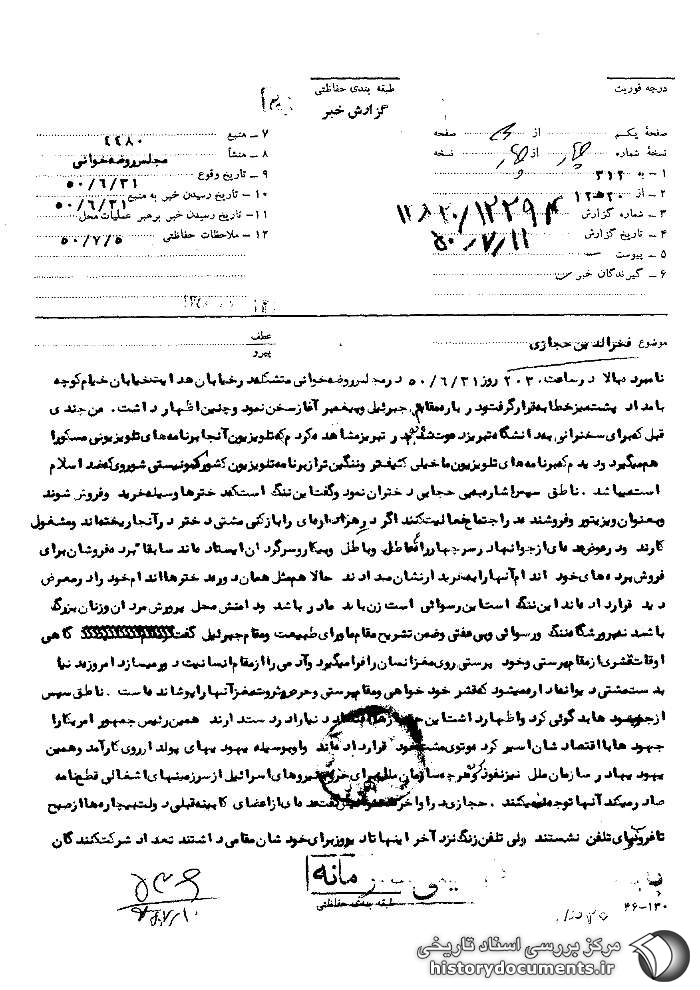 درجه فوریت
طبقه بندی حفاظتی
گزارش خبر
صفحهٔ یکم از صفحه
نسخهٔ شماره چهار از چهار نسخه
۱ – به ۳۱۲
۲ – از ۱۲ه۲۰
۳ – شماره گزارش ۱۲۲۹۴ / ۲۰ه۱۲
۴ – تاریخ گزارش ۵۰/۷/۱۱
۵ – پیوست
۶ – گیرندگان خبر
۷ – منبع ۲۲۸۰
۸ – منشأ مجلس روضه خوانی
۹ – تاریخ وقوع ۵۰/۶/۳۱
۱۰ – تاریخ رسیدن خبر به منبع ۵۰/۶/۳۱
۱۱ – تاریخ رسیدن خبر برهبر عملیات محل
۱۲ – ملاحظات حفاظتی ۵۰/۷/۵
موضوع فخرالدین حجازی
عطف
پیرو
نامبرده بالا در ساعت ۲۰۳۰ روز ۵۰/۶/۳۱ در مجلس روضه خوانی متشکله در خیابان هدایت خیابان خیام کوچه
بامداد پشت میز خطابه قرار گرفت و درباره مقام جبرئیل و پیغمبر آغاز سخن نمود و چنین اظهار داشت . من چندی
قبل که برای سخنرانی به دانشگاه تبریز دعوت شده بودم در تبریز مشاهده کردم که تلویزیون آنجا برنامه های تلویزیونی مسکو را
هم میگیرد و دیدم که برنامه های تلویزیون ما خیلی کثیف تر و ننگین تر از برنامه تلویزیون کشور کمونیستی شوروی که ضد اسلام
است میباشد . ناطق سپس اشاره به بی حجابی دختران نمود و گفت این ننگ است که دخترها وسیله خرید و فروش شوند
و به عنوان ویزیتور و فروشنده در اجتماع فعالیت کنند اگر در هر اداره ای را باز کنی مشتی دختر در آنجا ریخته اند و مشغول
کارند و در عوض عده ای از جوانها در سر چهارراه ها عاطل و باطل و بیکار و سرگردان ایستاده اند سابقا" برده فروشان برای
فروش برده های خود اندام آنها را به خریدارنشان میدادند حالا هم مثل همان دوره دخترها اندام خود را در معرض
دید قرار داده اند این ننگ است این رسوائی است زن باید مادر باشد و دامنش محل پرورش مردان و زنان بزرگ
باشد نه پرورشگاه ننگ و رسوائی و بی عفتی و ضمن تشریح مقام ماورای طبیعت و مقام جبرئیل گفت گاهی
اوقات قشری از مقام پرستی و خود پرستی روی مغز انسان را فرا میگیرد و آدمی را از مقام انسانیت دور میسازد امروز دنیا
بدست مشتی دیوانه اداره میشود که قشر خود خواهی و مقام پرستی و حرص و ثروت مغز آنها را پوشانده است . ناطق سپس
از جهودها بدگوئی کرد و اظهار داشت این دنیا را در دست دارند . همین رئیس جمهور امریکا را
جهودها با اقتصادشان اسیر کرده و توی مشت خود قرار داده اند و او بوسیله یهودیهای پولدار روی کار آمده و همین
یهودیها در سازمان ملل نیز نفوذ کرده و هرچه سازمان ملل برای خروج نیروهای اسرائیل از سرزمینهای اشغالی قطع نامه
صادر میکند آنها توجه نمیکنند . حجازی در اواخر گفت عده ای از اعضای کابینه قبلی دولت بیچاره ها از صبح
تا غروب پای تلفن نشستند ولی تلفن زنگ نزد آخر اینها تا دیروز برای خودشان مقامی داشتند تعداد شرکت کنندگان
مانه
طبقه بندی حفاظتی
۴۶–۱۳۰
مرکز بررسی اسناد تاریخی
historydocuments.ir